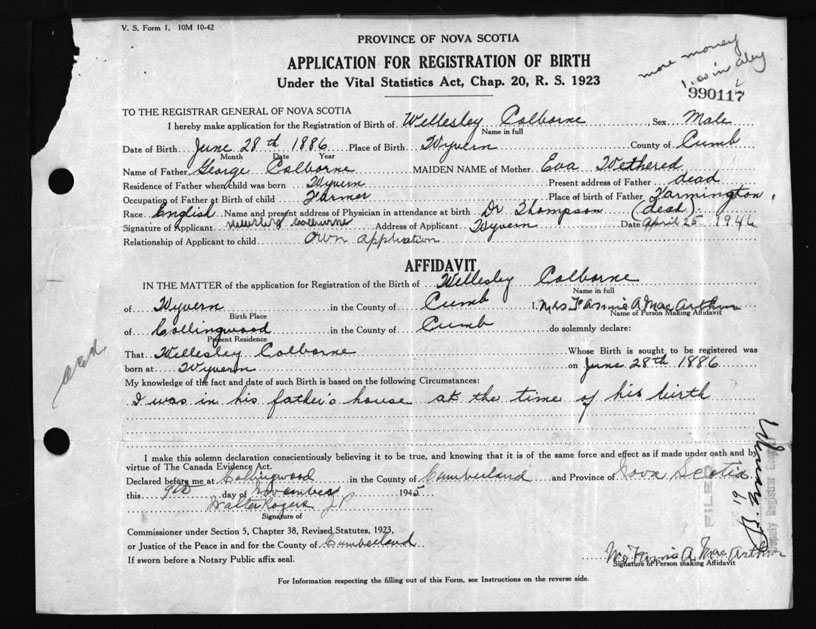 V. S. Form 1. 10M 10-42
PROVINCE OF NOVA SCOTIA
APPLICATION FOR REGISTRATION OF BIRTH
Under the Vital Statistics Act, Chap. 20, R. S. 1923
more money
990117
TO THE REGISTRAR GENERAL OF NOVA SCOTIA
I hereby make application for the Registration of Birth of Wellesley Colborne, Sex Male
Name in full
Date of Birth June 28th 1886 Place of Birth Wyvern County of Cumb
Month Date Year
Name of Father George Colborne MAIDEN NAME of Mother Eva Wethered
Residence of Father when child was born Wyvern Present address of Father dead
Occupation of Father at Birth of child Farmer Place of birth of Father Farmington
Race English Name and present address of Physician in attendance at birth Dr Thompson (dead)
Signature of Applicant Colborne Address of Applicant Wyvern Date April 25 1946
Relationship of Applicant to child own application
AFFIDAVIT
IN THE MATTER of the application for Registration of the Birth of Wellesley Colborne
Name in full
of Wyvern in the County of Cumb I, Mrs A Mac Arthur
Birth Place Name of Person Making Affidavit
of Collingwood in the County of Cumb do solemnly declare:
Present Residence
That Wellesley Colborne Whose Birth is sought to be registered was
born at Wyvern on June 28th 1886
My knowledge of the fact and date of such Birth is based on the following Circumstances:
I was in his father's house at the time of his birth
I make this solemn declaration conscientiously believing it to be true, and knowing that it is of the same force and effect as if made under oath and by
virtue of The Canada Evidence Act.
Declared before me at Collingwood in the County of Cumberland and Province of Nova Scotia
this 9th day of November 1945
Walter Rogers J.P
Signature of
Commissioner under Section 5, Chapter 38, Revised Statutes, 1923,
or Justice of the Peace in and for the County of Cumberland
If sworn before a Notary Public affix seal.
A. Mac Arthur
Signature of Person making Affidavit
FILED
Deputy Registrar General
For Information respecting the filling out of this Form, see Instructions on the reverse side.